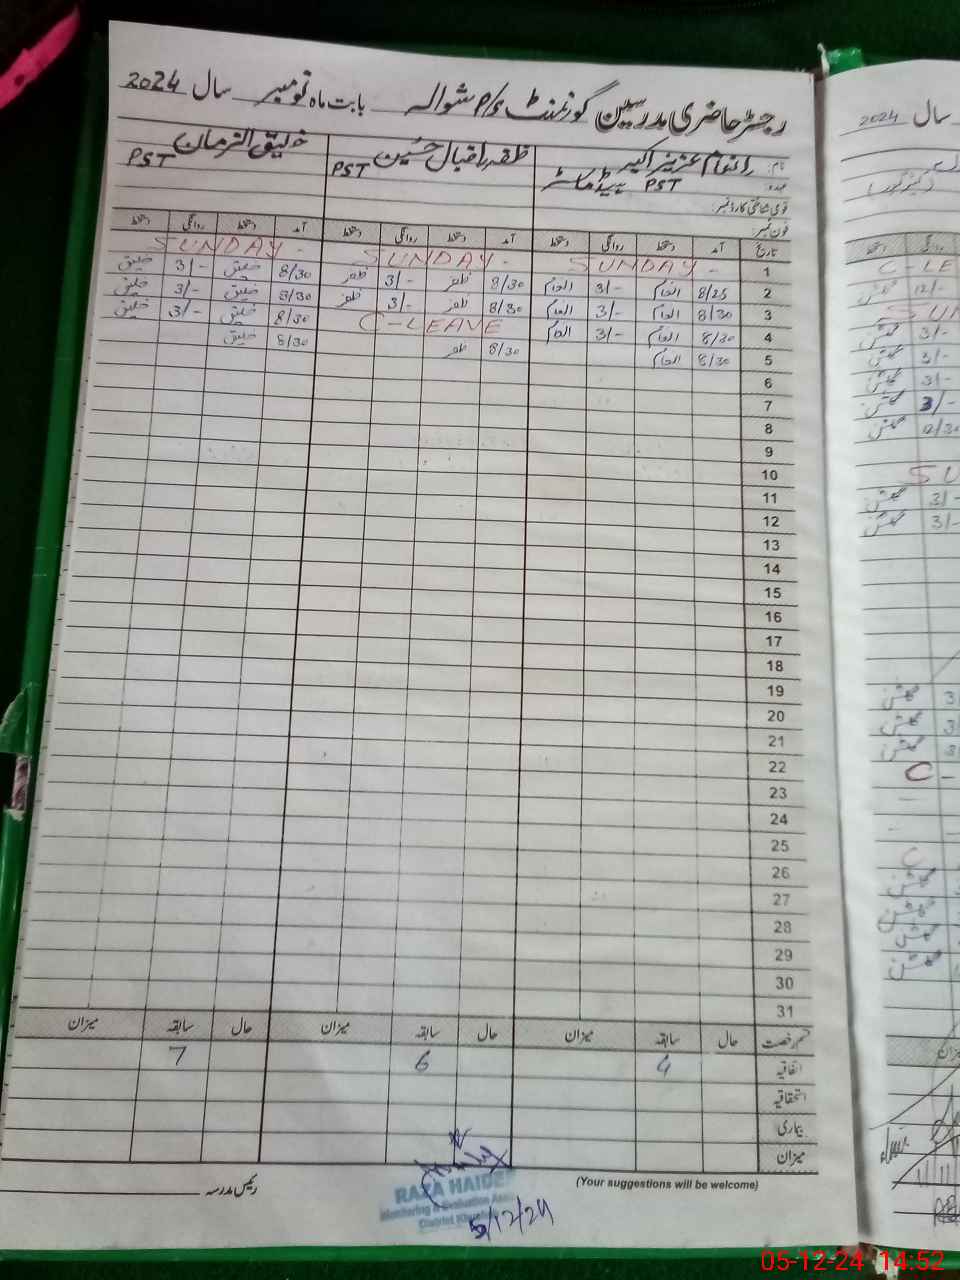 رجسٹر حاضری مدرسین گورنمنٹ P/S شوالہ بابت ماہ نومبر سال 2024
نام: انعام عزیز اکبر ظفر اقبال حسین خلیق الزمان
عہدہ: PST ہیڈ ماسٹر PST PST
قومی شناختی کارڈ نمبر:
فون نمبر:
تاریخ آمد دستخط روانگی دستخط آمد دستخط روانگی دستخط آمد دستخط روانگی دستخط
1 SUNDAY - SUNDAY - SUNDAY -
2 8/25 انعام 3/- انعام 8/30 ظفر 3/- ظفر 8/30 خلیق 3/- خلیق
3 8/30 انعام 3/- انعام 8/30 ظفر 3/- ظفر 8/30 خلیق 3/- خلیق
4 8/30 انعام 3/- انعام C-LEAVE 8/30 خلیق 3/- خلیق
5 8/30 انعام 8/30 ظفر 8/30 خلیق
6
7
8
9
10
11
12
13
14
15
16
17
18
19
20
21
22
23
24
25
26
27
28
29
30
31
قسم رخصت حال سابقہ میزان حال سابقہ میزان حال سابقہ میزان
اتفاقیہ 4 6 7
استحقاقیہ
بیماری
میزان
(Your suggestions will be welcome)
رئیس مدرسہ
RAZA HAIDER
Monitoring & Evaluation
District
5/12/24
سال 2024
12/-
3/-
3/-
3/-
3/-
12/30
3/-
3/-
05-12-24 14:52